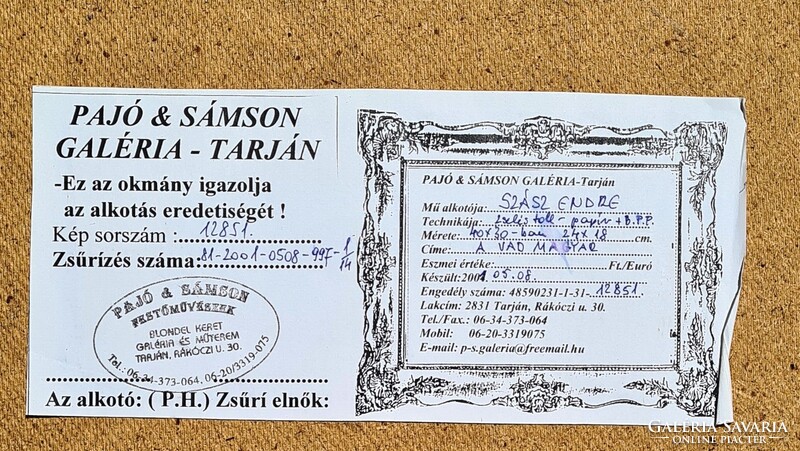 PAJÓ & SÁMSON
GALÉRIA - TARJÁN
-Ez az okmány igazolja
az alkotás eredetiségét !
Kép sorszám : 12851.
Zsűrizés száma: 81-2001-0508-997-1/14
PAJÓ & SÁMSON
FESTŐMŰVÉSZEK
BLONDEL KERET
GALÉRIA ÉS MŰTEREM
TARJÁN, RÁKÓCZI U. 30.
Tel.: 06-34-373-064, 06-20/3319-075
Az alkotó: ( P.H.) Zsűrí elnök:
PAJÓ & SÁMSON GALÉRIA-Tarján
Mű alkotója: SZÁSZ ENDRE
Technikája: toll - papír + B.P.P.
Mérete: 40x30-ban 24x18 cm.
Címe: A VAD MAGYAR
Eszmei értéke: Ft./Euró
Készült: 2001.05.08.
Engedély száma: 48590231-1-31- 12851.
Lakcím: 2831 Tarján, Rákóczi u. 30.
Tel./Fax.: 06-34-373-064
Mobil: 06-20-3319075
E-mail: p-s.galeria@freemail.hu
GALÉRIA SAVARIA
ONLINE PIACTÉR